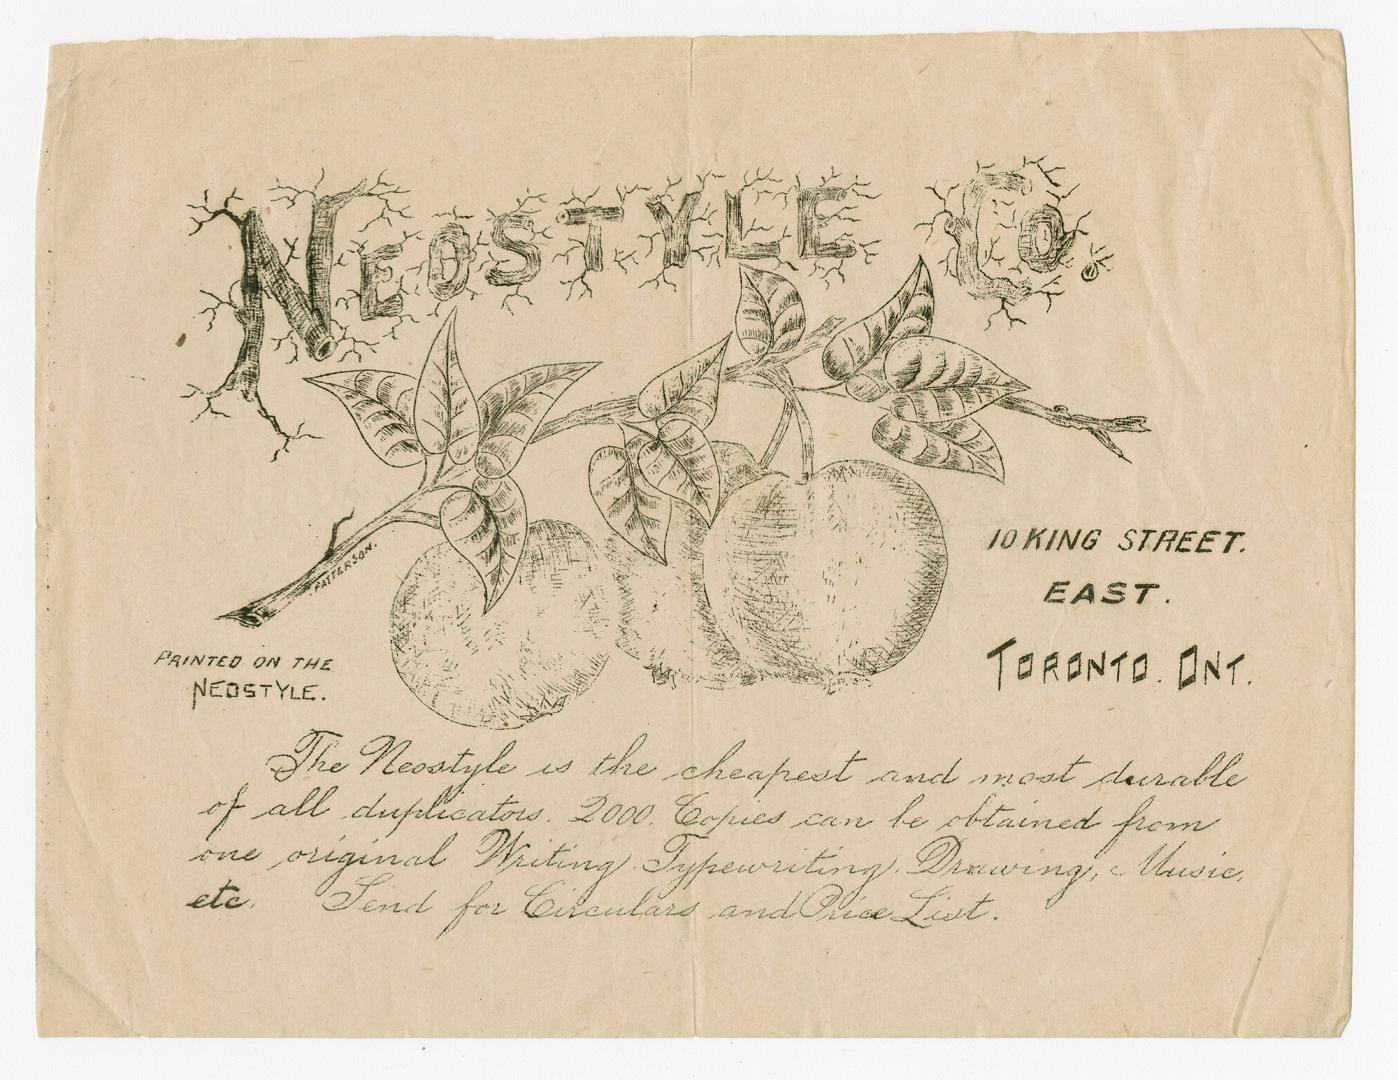 NEOSTYLE Co.
PATTERSON.
10 KING STREET.
EAST.
TORONTO. ONT.
PRINTED ON THE
NEOSTYLE.
The Neostyle is the cheapest and most durable
of all duplicators. 2000. Copies can be obtained from
one original Writing, Typewriting, Drawing, Music,
etc. Send for Circulars and Price List.